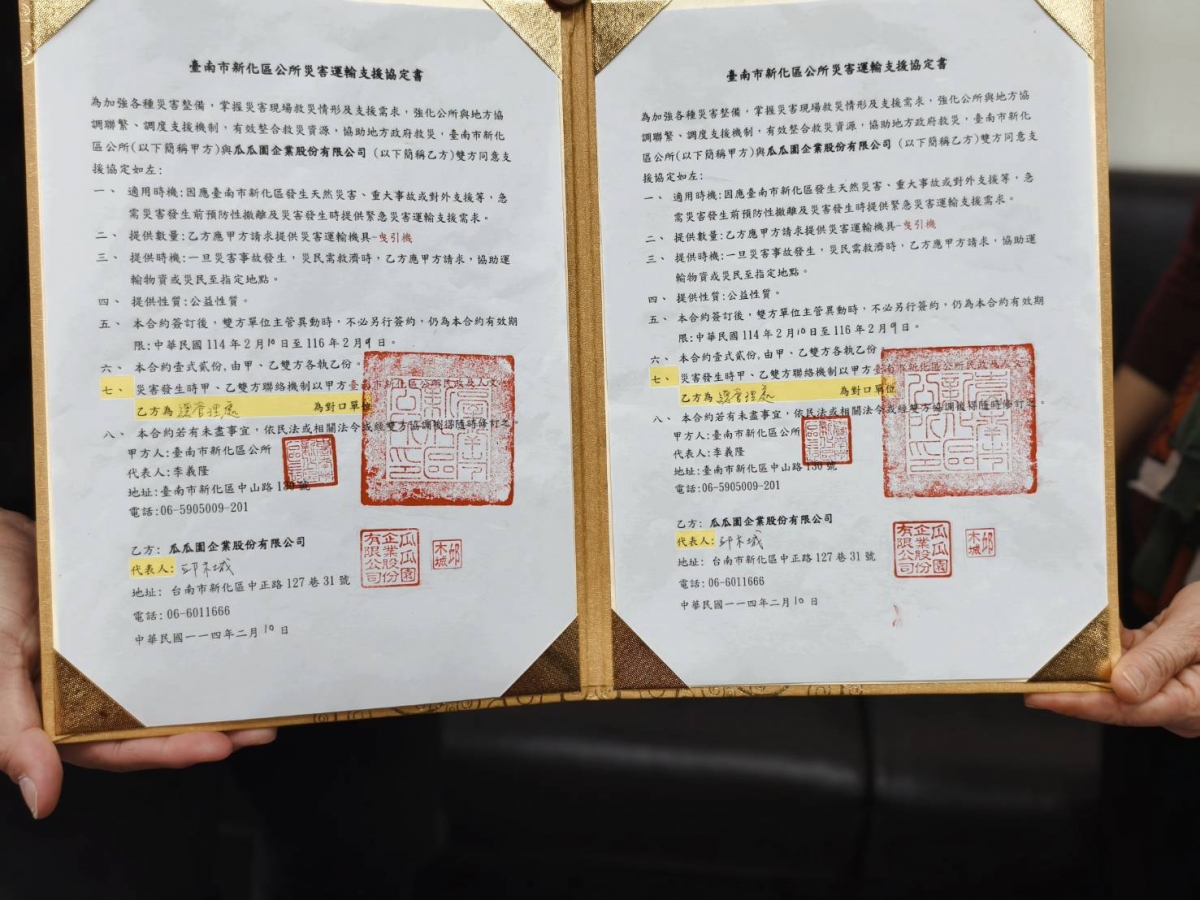 臺南市新化區公所災害運輸支援協定書
為加強各種災害整備，掌握災害現場救災情形及支援需求，強化公所與地方協
調聯繫、調度支援機制，有效整合救災資源，協助地方政府救災，臺南市新化
區公所(以下簡稱甲方)與瓜瓜園企業股份有限公司 (以下簡稱乙方)雙方同意支
援協定如左:
一、 適用時機:因應臺南市新化區發生天然災害、重大事故或對外支援等，急
需災害發生前預防性撤離及災害發生時提供緊急災害運輸支援需求。
二、 提供數量:乙方應甲方請求提供災害運輸機具-曳引機
三、 提供時機:一旦災害事故發生，災民需救濟時，乙方應甲方請求，協助運
輸物資或災民至指定地點。
四、 提供性質:公益性質。
五、 本合約簽訂後，雙方單位主管異動時，不必另行簽約，仍為本合約有效期
限:中華民國 114 年 2 月 10 日至 116 年 2 月 9 日。
六、 本合約壹式貳份,由甲、乙雙方各執乙份。
七、 災害發生時甲、乙雙方聯絡機制以甲方臺南市新化區公所民政及人文
乙方為 管理處 為對口單位
八、 本合約若有未盡事宜，依民法或相關法令或經雙方協調後得隨時修訂之。
甲方人:臺南市新化區公所
代表人:李義隆
地址:臺南市新化區中山路 130 號
電話:06-5905009-201
乙方: 瓜瓜園企業股份有限公司
代表人: 邱木城
地址: 台南市新化區中正路 127 巷 31 號
電話:06-6011666
中華民國一一四年二月 10 日
瓜瓜園
企業股份
有限公司
邱
木城
臺南市新化區公所災害運輸支援協定書
為加強各種災害整備，掌握災害現場救災情形及支援需求，強化公所與地方協
調聯繫、調度支援機制，有效整合救災資源，協助地方政府救災，臺南市新化
區公所(以下簡稱甲方)與瓜瓜園企業股份有限公司 (以下簡稱乙方)雙方同意支
援協定如左:
一、 適用時機:因應臺南市新化區發生天然災害、重大事故或對外支援等，急
需災害發生前預防性撤離及災害發生時提供緊急災害運輸支援需求。
二、 提供數量:乙方應甲方請求提供災害運輸機具-曳引機
三、 提供時機:一旦災害事故發生，災民需救濟時，乙方應甲方請求，協助運
輸物資或災民至指定地點。
四、 提供性質:公益性質。
五、 本合約簽訂後，雙方單位主管異動時，不必另行簽約，仍為本合約有效期
限:中華民國 114 年 2 月 10 日至 116 年 2 月 9 日。
六、 本合約壹式貳份,由甲、乙雙方各執乙份
七、 災害發生時甲、乙雙方聯絡機制以甲方臺南市新化區公所民政及人文
乙方為 管理處 為對口單位
八、 本合約若有未盡事宜，依民法或相關法令或經雙方協調後得隨時修訂之。
甲方人:臺南市新化區公所
代表人:李義隆
地址:臺南市新化區中山路 130 號
電話:06-5905009-201
乙方: 瓜瓜園企業股份有限公司
代表人: 邱木城
地址: 台南市新化區中正路 127 巷 31 號
電話:06-6011666
中華民國一一四年二月 10 日
瓜瓜園
企業股份
有限公司
邱
木城